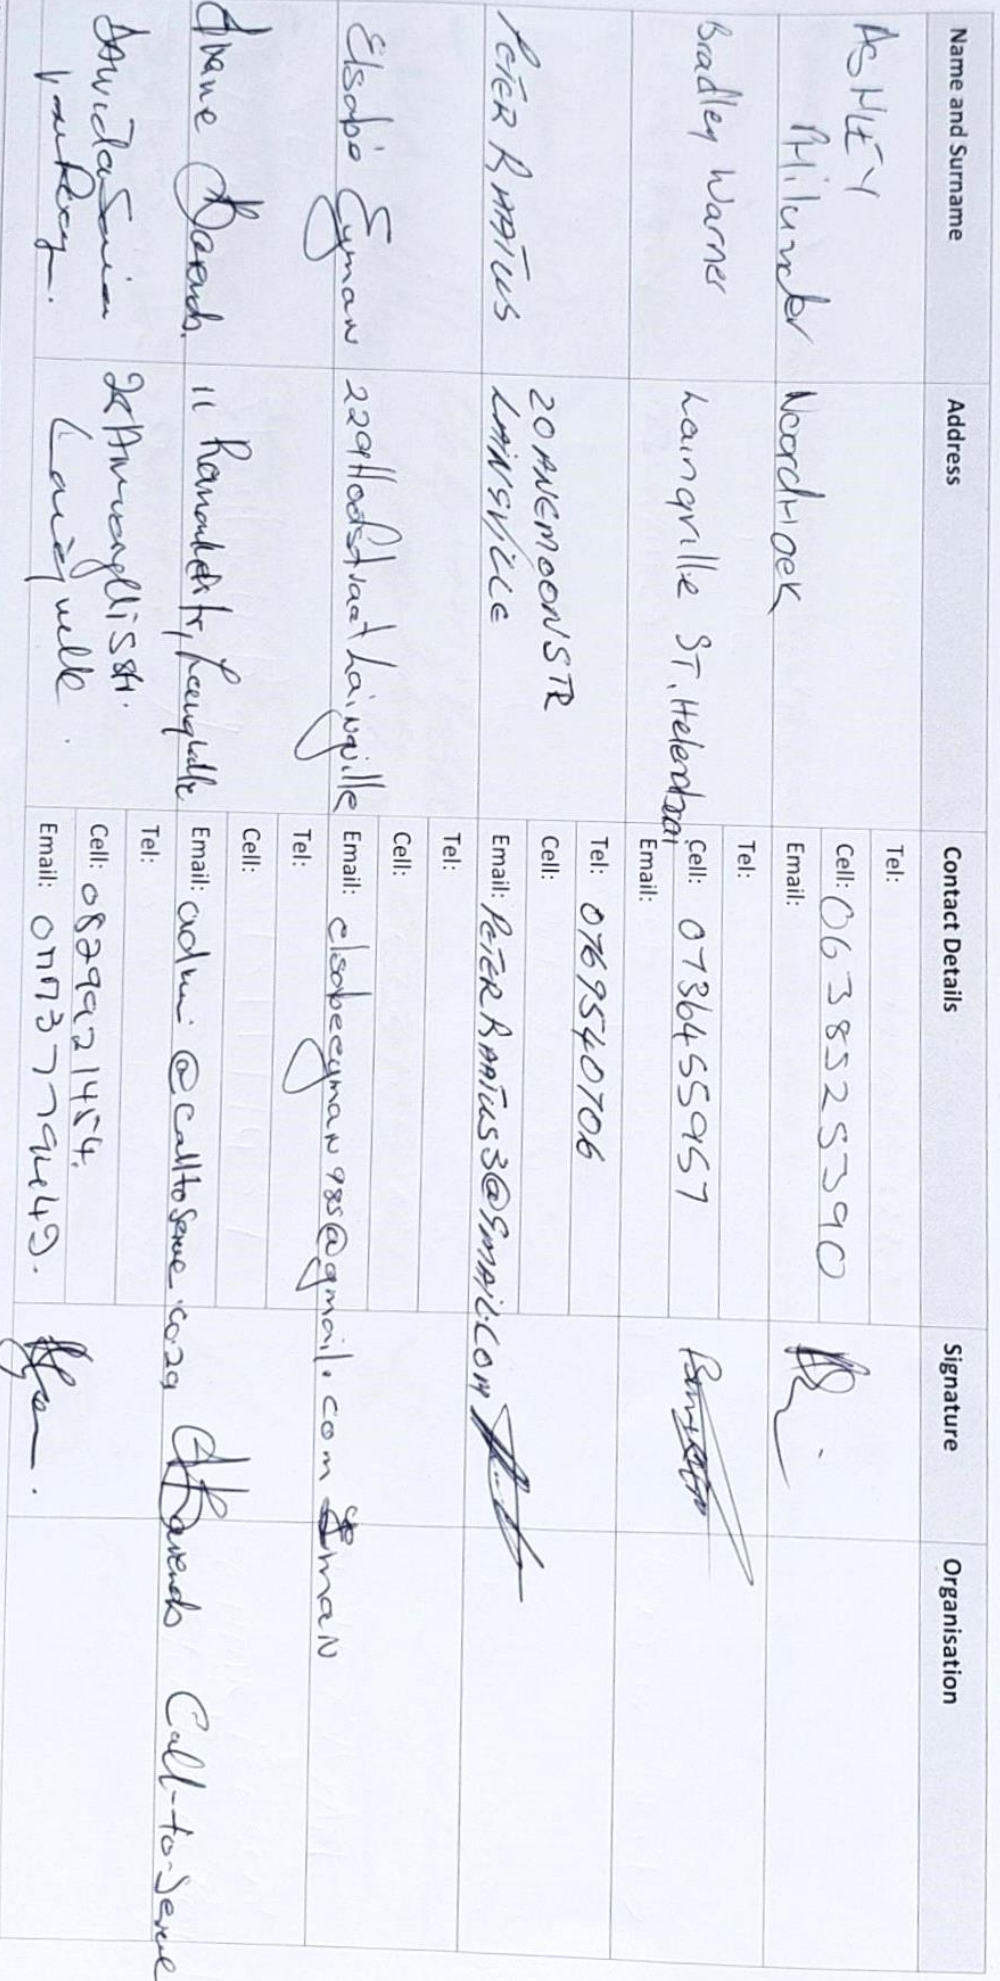 Name and Surname Address Contact Details Signature Organisation
ASHLEY
Philander Noordhoek
Tel:
Cell: 0638525390
Email:
Bradley Warner Laingville ST. Helenabaai
Tel:
Cell: 0736455957
Email:
PETER RAATUS 20 ANEMOON STR
LAINGVILLE
Tel: 0769540706
Cell:
Email: PETERRAATUS3@GMAIL.COM
Elsabé Eyman 229 Hoofstraat Laingville
Tel:
Cell:
Email: elsabeeyman985@gmail.com Eyman
Barends
11 Laingville
Tel:
Cell:
Email: admin@calltoserve.co.za Barends Call-to-Serve
Tel:
Cell: 0829921454.
Email: